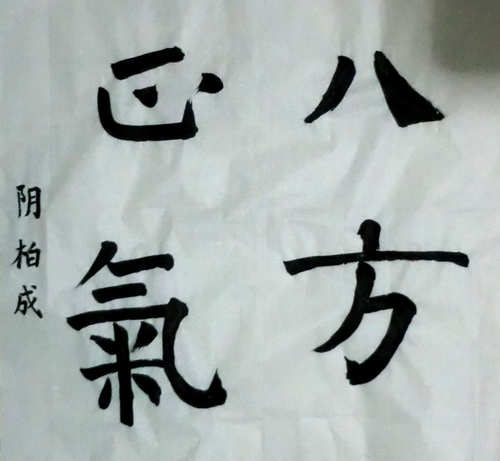 八方
正氣
阴柏成